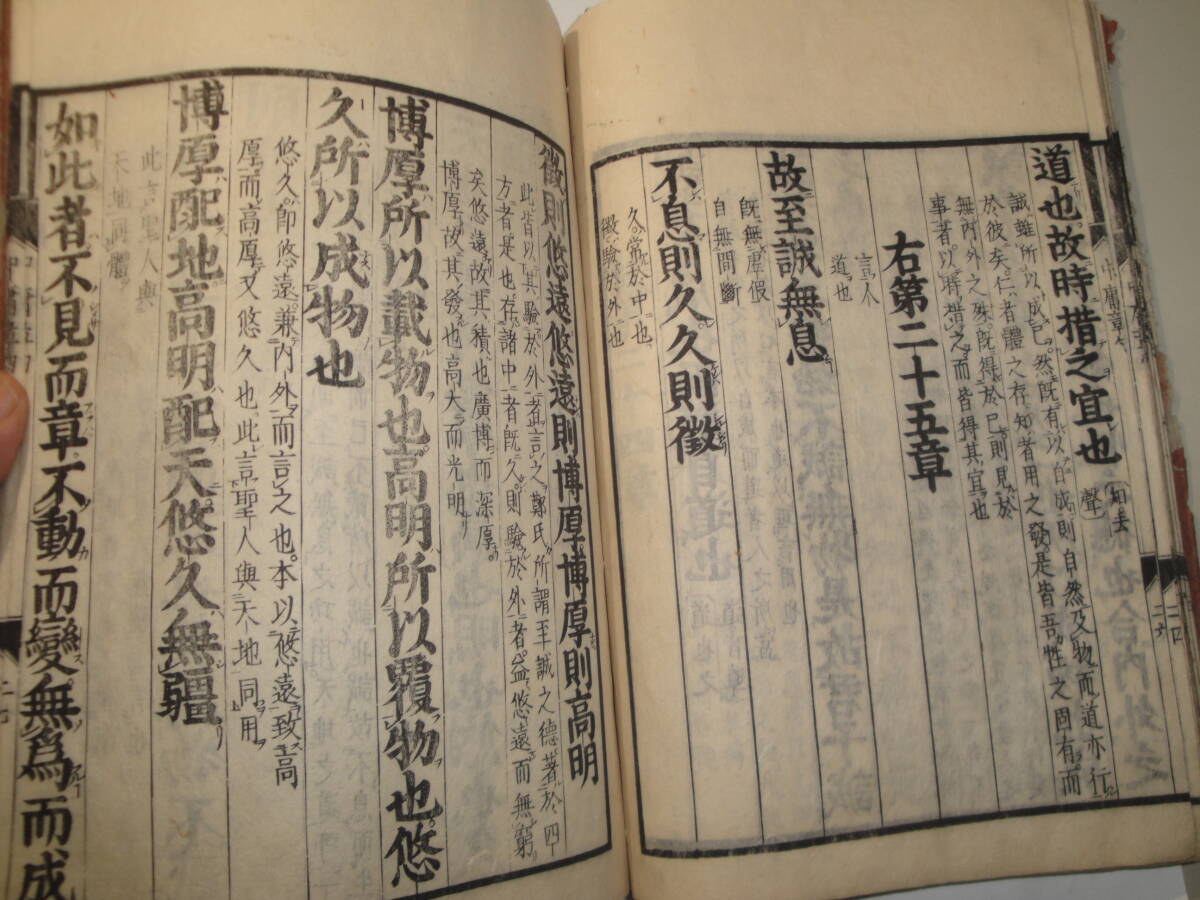 道也故時措之宜也
知去
聲
誠雖所以成己然既有以自成則自然及物而道亦行
於彼矣仁者體之存知者用之發是皆吾性之固有而
無內外之殊既得於己則見於
事者以時措之而皆得其宜也
右第二十五章
言人
道也
故至誠無息
既無虛假
自無間斷
不息則久久則徵
久常於中也
徵驗於外也
徵則悠遠悠遠則博厚博厚則高明
此皆以其驗於外者言之鄭氏所謂至誠之德著於四
方者是也存諸中者既久則驗於外者益悠遠而無窮
矣悠遠故其積也廣博而深厚
博厚故其發也高大而光明
博厚所以載物也高明所以覆物也悠
久所以成物也
悠久即悠遠兼內外而言之也本以悠遠致高
厚而高厚又悠久也此言聖人與天地同用
博厚配地高明配天悠久無疆
此言聖人與
天地同體
如此者不見而章不動而變無為而成